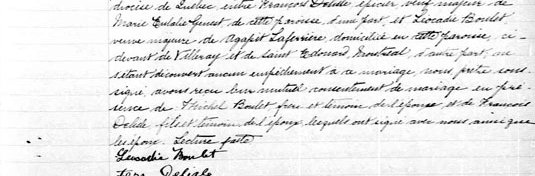 diocèse de Québec, entre François Delisle épicier, veuf majeur de
Marie Eulalie Genest de cette paroisse d'une part, et Léocadie Boulet
veuve majeure de Agapit Laferrière domiciliée en cette paroisse, ci-
devant de Villeray et de Saint Edouard, Montréal, d'autre part, ne
s'étant découvert aucun empêchement à ce mariage, nous prêtre sous-
signé, avons reçu leur mutuel consentement de mariage en pré-
sence de Michel Boulet frère et témoin de l'épouse, et de François
Delisle, fils et témoin de l'époux, lesquels ont signé avec nous ainsi que
les époux. Lecture faite
Leocadie Boulet
Delisle